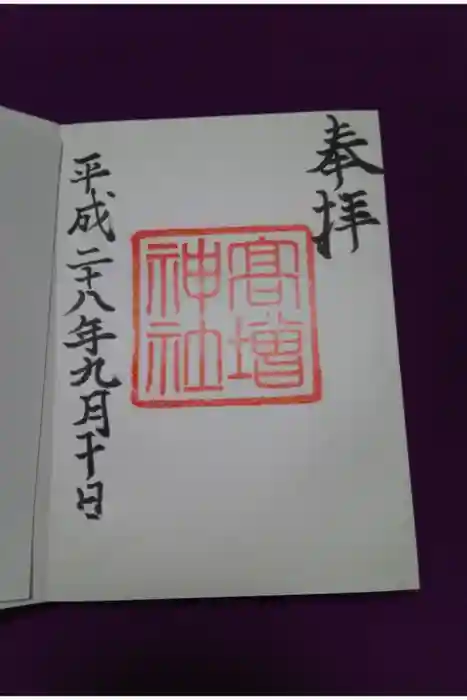 奉拝
髙増
神社
平成二十八年九月十日